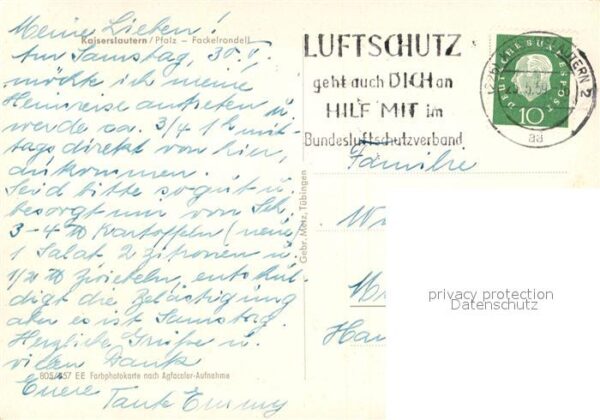 Meine Lieben!
Kaiserslautern / Pfalz – Fackelrondell
Am Samstag, 30. V.
möchte ich meine
Heimreise antreten u.
werde ca. 3/4 1 h mit-
tags direkt von hier,
ankommen.
Seid bitte so gut u.
besorgt mir von
3-4 ℔ Kartoffeln (neue
1 Salat 2 Zitronen u.
1/2 ℔ Zwiebeln, entschul-
digt die Belästigung
aber es ist Samstag.
Herzliche Grüße u.
vielen Dank
805/457 EE Farbphotokarte nach Agfacolor-Aufnahme
Euere
Tante Emmy
Gebr. Metz, Tübingen
LUFTSCHUTZ
geht auch DICH an
HILF MIT im
Bundesluftschutzverband
DEUTSCHE BUNDESPOST
10
aa
Familie
privacy protection
Datenschutz